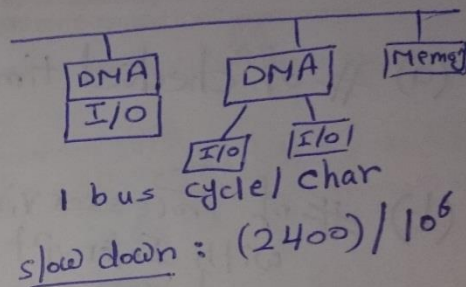 DMA
I/O
DMA
Memory
I/O
I/O
1 bus cycle/ char
slow down : (2400)/10⁶